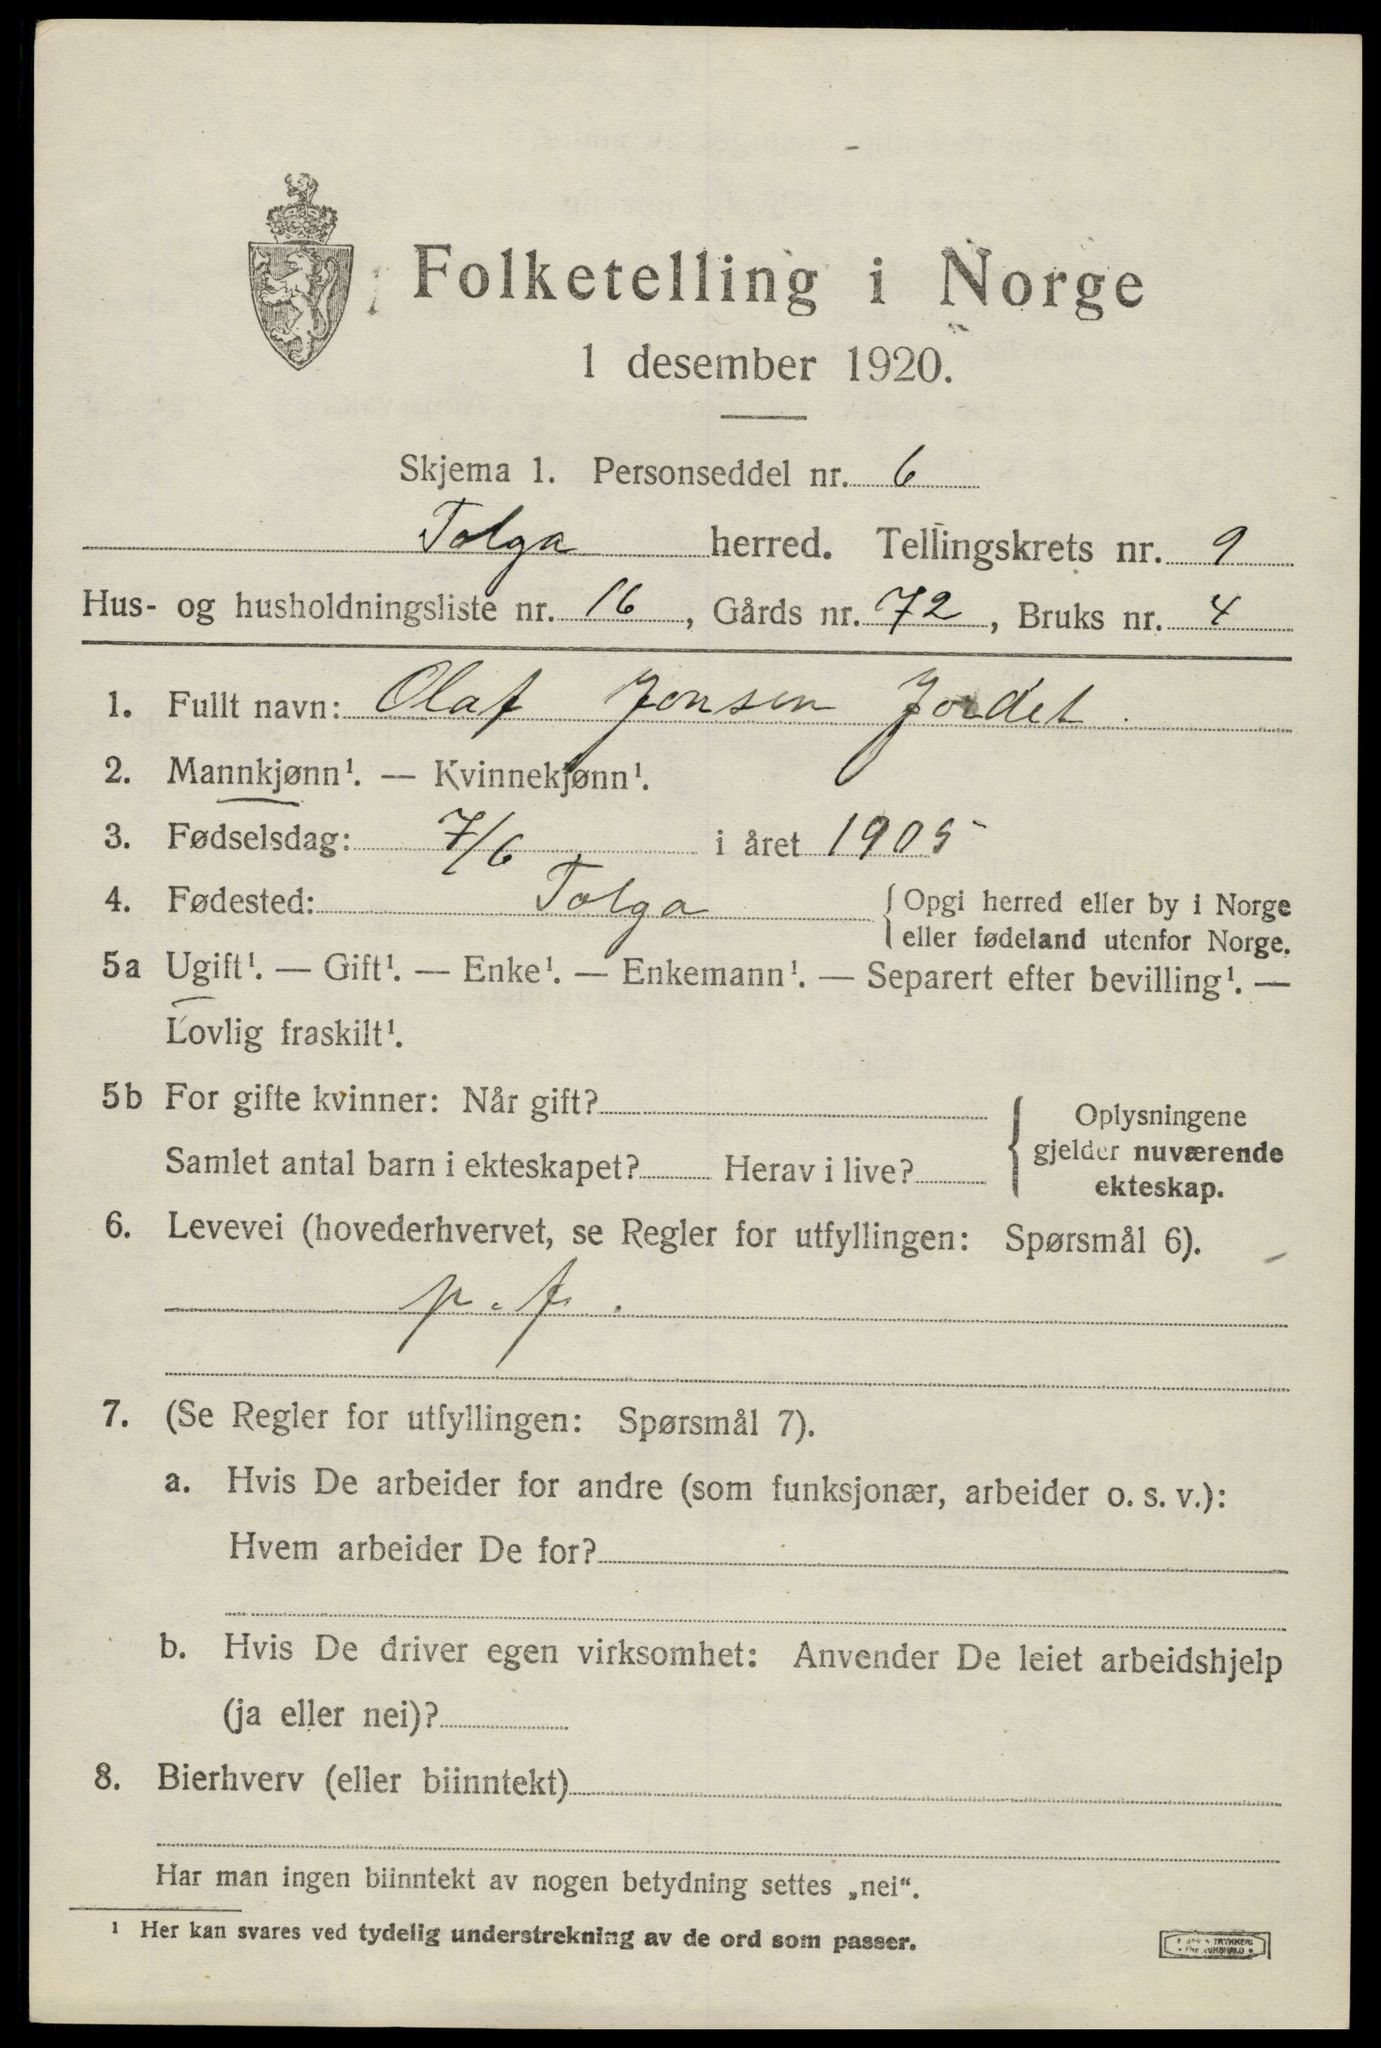 Folketelling i Norge
1 desember 1920.
Skjema 1. Personseddel nr. 6
Tolga herred. Tellingskrets nr. 9
Hus- og husholdningsliste nr. 16, Gårds nr. 72, Bruks nr. 4
1. Fullt navn: Olaf Jonsen Jordet.
2. Mannkjønn¹. — Kvinnekjønn¹.
3. Fødselsdag: 7/6 i året 1905
4. Fødested: Tolga { Opgi herred eller by i Norge
eller fødeland utenfor Norge.
5a Ugift¹. — Gift¹. — Enke¹. — Enkemann¹. — Separert efter bevilling¹. —
Lovlig fraskilt¹.
5b For gifte kvinner: Når gift?
Samlet antal barn i ekteskapet? Herav i live?
{ Oplysningene
gjelder nuværende
ekteskap.
6. Levevei (hovederhvervet, se Regler for utfyllingen: Spørsmål 6).
p. f.
7. (Se Regler for utfyllingen: Spørsmål 7).
a. Hvis De arbeider for andre (som funksjonær, arbeider o. s. v.):
Hvem arbeider De for?
b. Hvis De driver egen virksomhet: Anvender De leiet arbeidshjelp
(ja eller nei)?
8. Bierhverv (eller biinntekt)
Har man ingen biinntekt av nogen betydning settes „nei“.
¹ Her kan svares ved tydelig understrekning av de ord som passer.